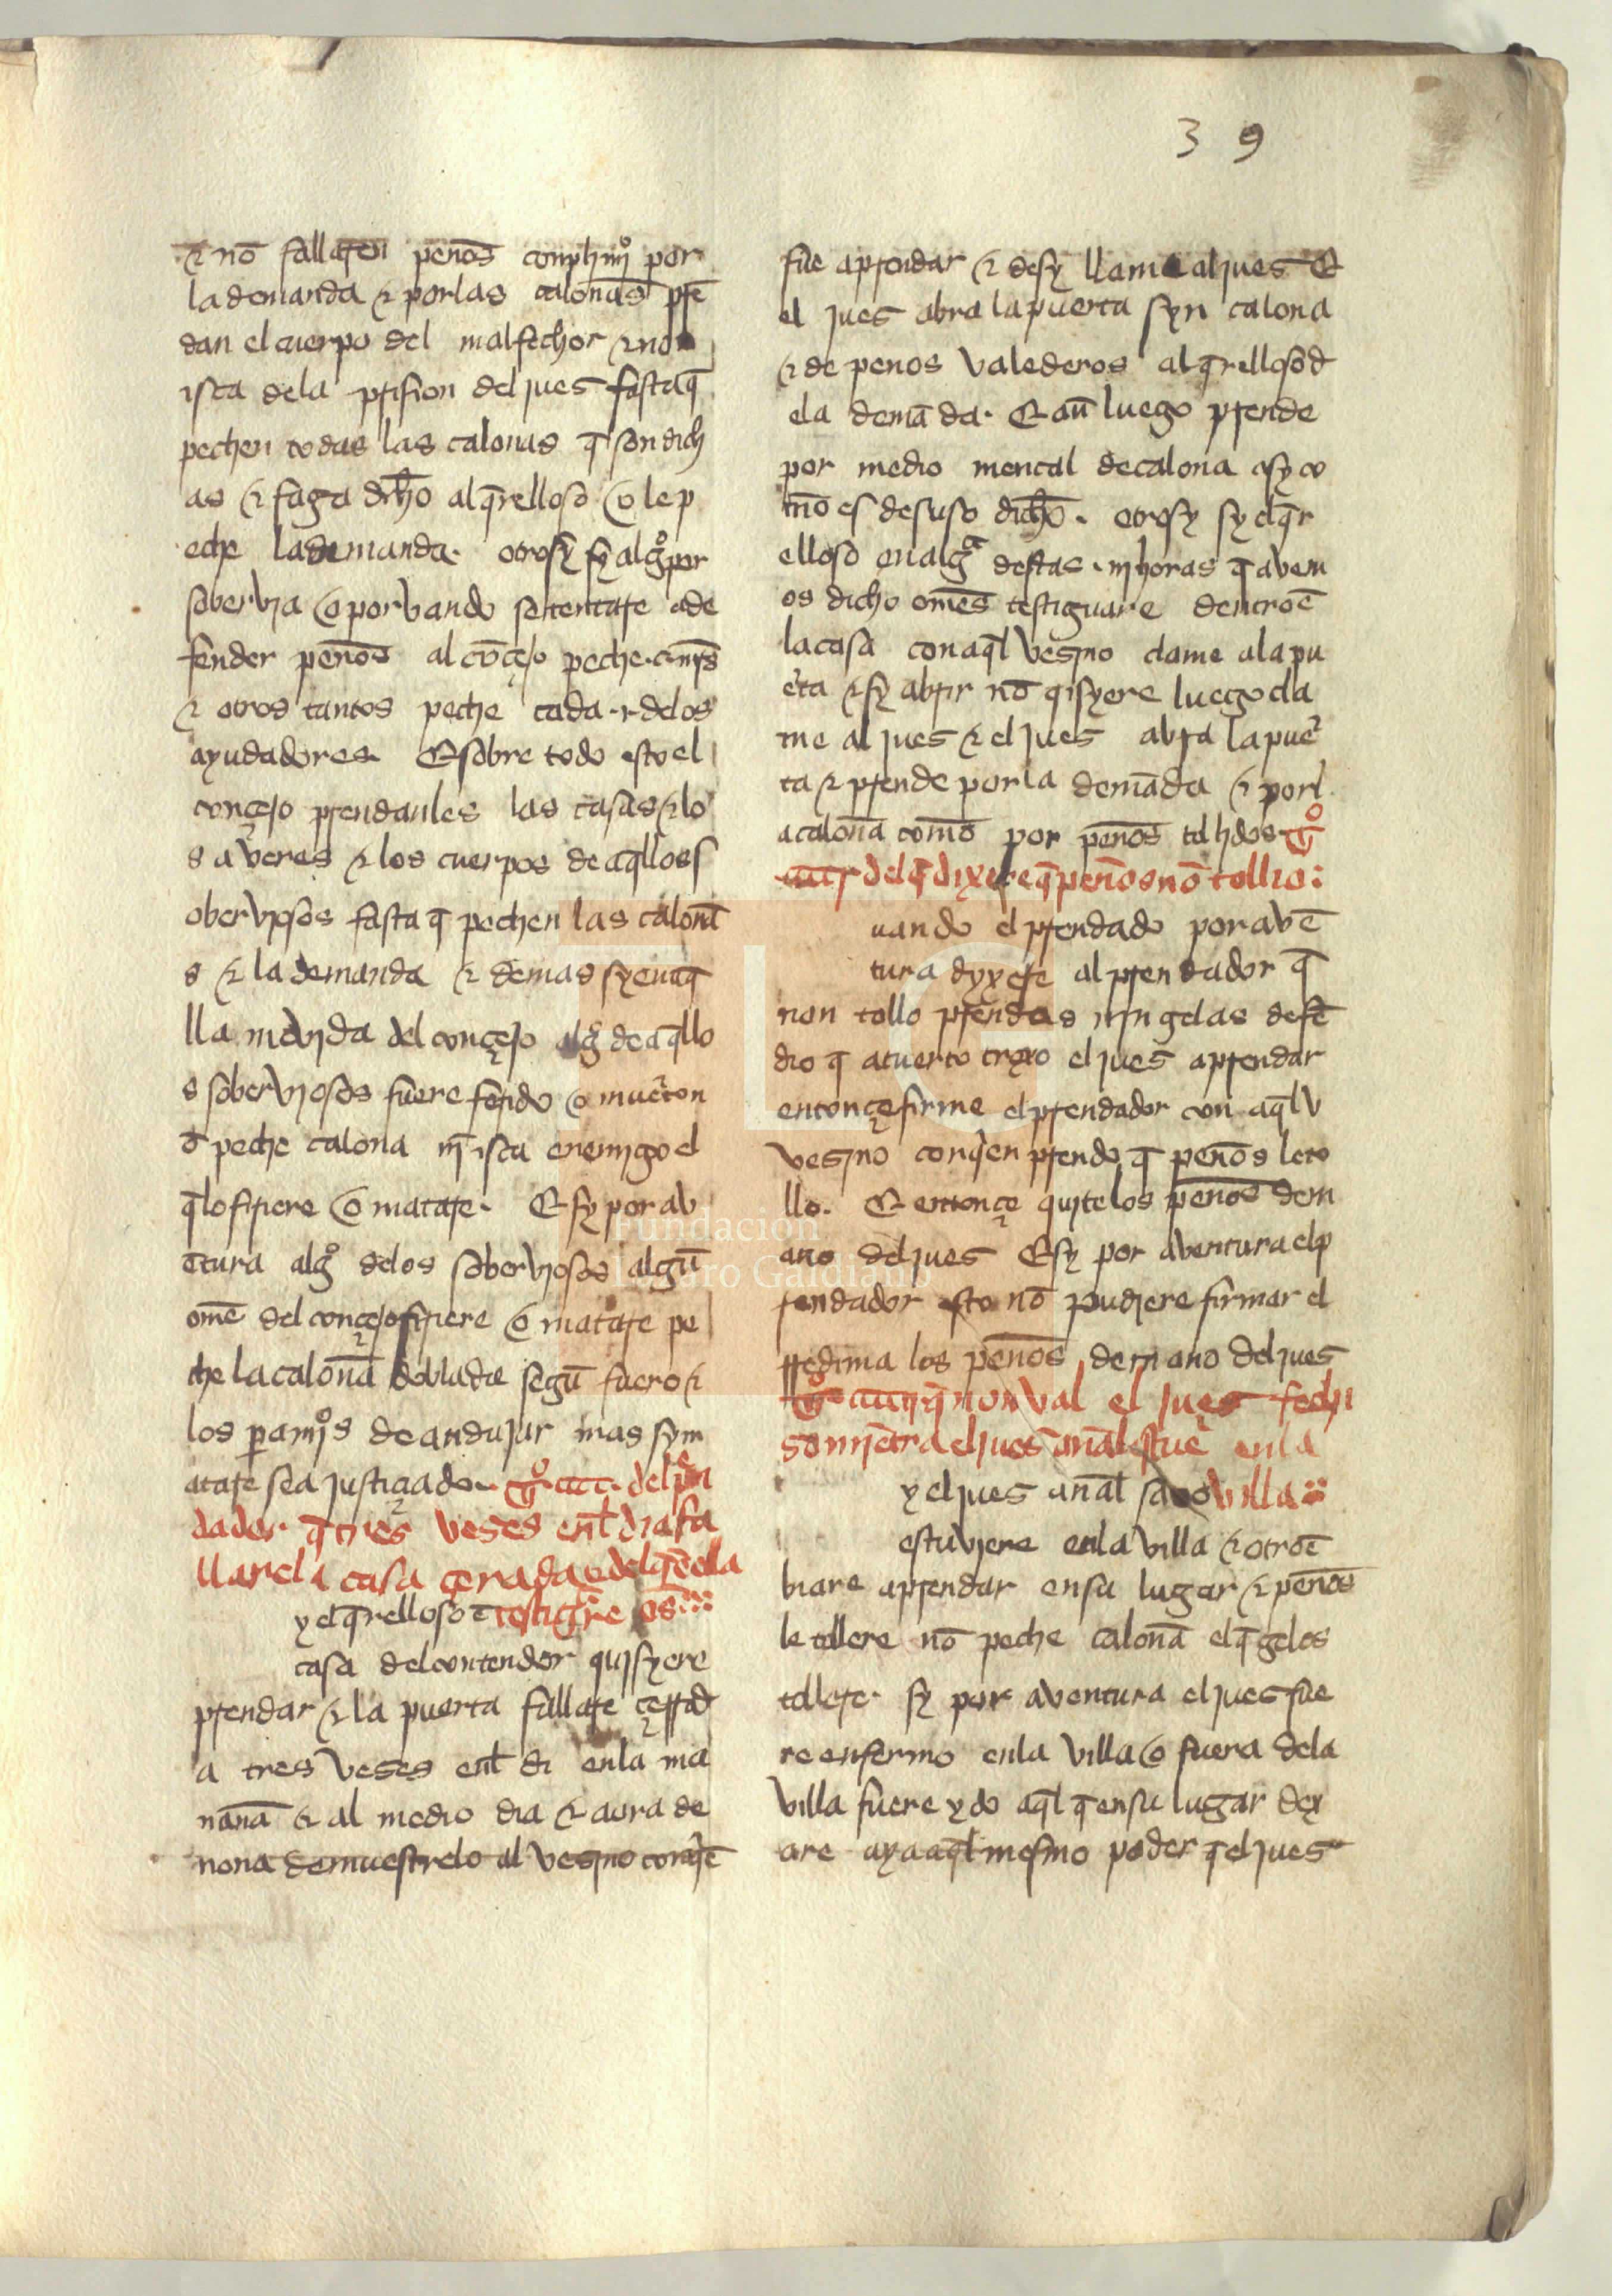 39
& nō fallaren peños conplimjº por
la demanda & por las caloñas prē
dan el cuerpo del malfechor & non
isca dela prision del jues fasta q̄
pechen todas las calonas q̄ son dich
as & faga drh̄o al q̄relloso o le p
eche la demanda. otrosy sy algºpor
sobervia o por vando se tentare ade
fender peños al cōçejo peche .c. mr̄s
& otros tantos peche cada .i. delos
ayudadores. E sobre todo esto el
conçejo prendanles las casas & lo
s averes & los cuerpos de aq̄llos s
oberviosos fasta q̄ pechen las caloñā
s & la demanda & demas sy en aq̄
lla movida del conçejo algº de aq̄llo
s soberviosos fuere ferido o muerto n
ō peche calona nj̄ isca enemigo el
q̄lo firiere o matare. E sy por av
ētura algº delos soberviosos algūn
ome del conçejo firiere o matare pe
che la caloña doblada segū fuero &
los p̱amjºs de andujar mas sy m
atare sea justiçiado. tº del pen
dador q̄ tres veses enl dia fa
llare la casa çerada & del q̄ ē ella
testigr̄e os
y el q̄relloso ē
casa del contendor qujsyere
prendar & la puerta fallare çerrad
a tres veses enl di en la ma
nāna & al medio dia & aora de
nona demuestrelo al vesjno con qē
fue aprendar & desy llame al jues E
el jues abra la puerta syn calona
& de penos valederos al q̄relloso d
ela demāda. E aū luego prende
por medio mencal de calona asy co
mō es de suso dicho. otrosy sy el q̄r
elloso en algª destas .iij horas q̄ avem
os dicho omēs testiguare dentro ē
la casa con aq̄l vesjno clame ala pu
erta & sy abrir nō qisyere luego cla
me al jues & el jues abra la puer
ta & prende por la demāda & por l
a caloña comō por peños tollidos tº
del q̄ dixere q̄ peños nō tollio:
uando el prendado por avē
tura dyxere al prendador q̄
non tollo prendas nin gelas defē
dio q̄ a tuerto troxo el jues aprendar
entonçe firme el prendador con aq̄l v
vesjno con qen prendo q̄ peños le to
llo. E entonçe qujte los peños de m
ano del jues E sy por aventura el p
rendador esto nō pudiere firmar el
rredima los peños de mano del jues
tº q̄ non val el jues fechi
so mjētra el jues anal fue en la
villa
y el jues anal sano
estuvjere en la villa & otro ē
biare aprendar en su lugar & peños
le tollere nō peche caloña el q̄ gelos
tollere. sy por aventura el jues fue
re enfermo en la villa o fuera dela
villa fuere ydo aq̄l q̄ en su lugar dex
are aya aq̄l mesmo poder q̄ el jues
Fundación
Lázaro Galdiano